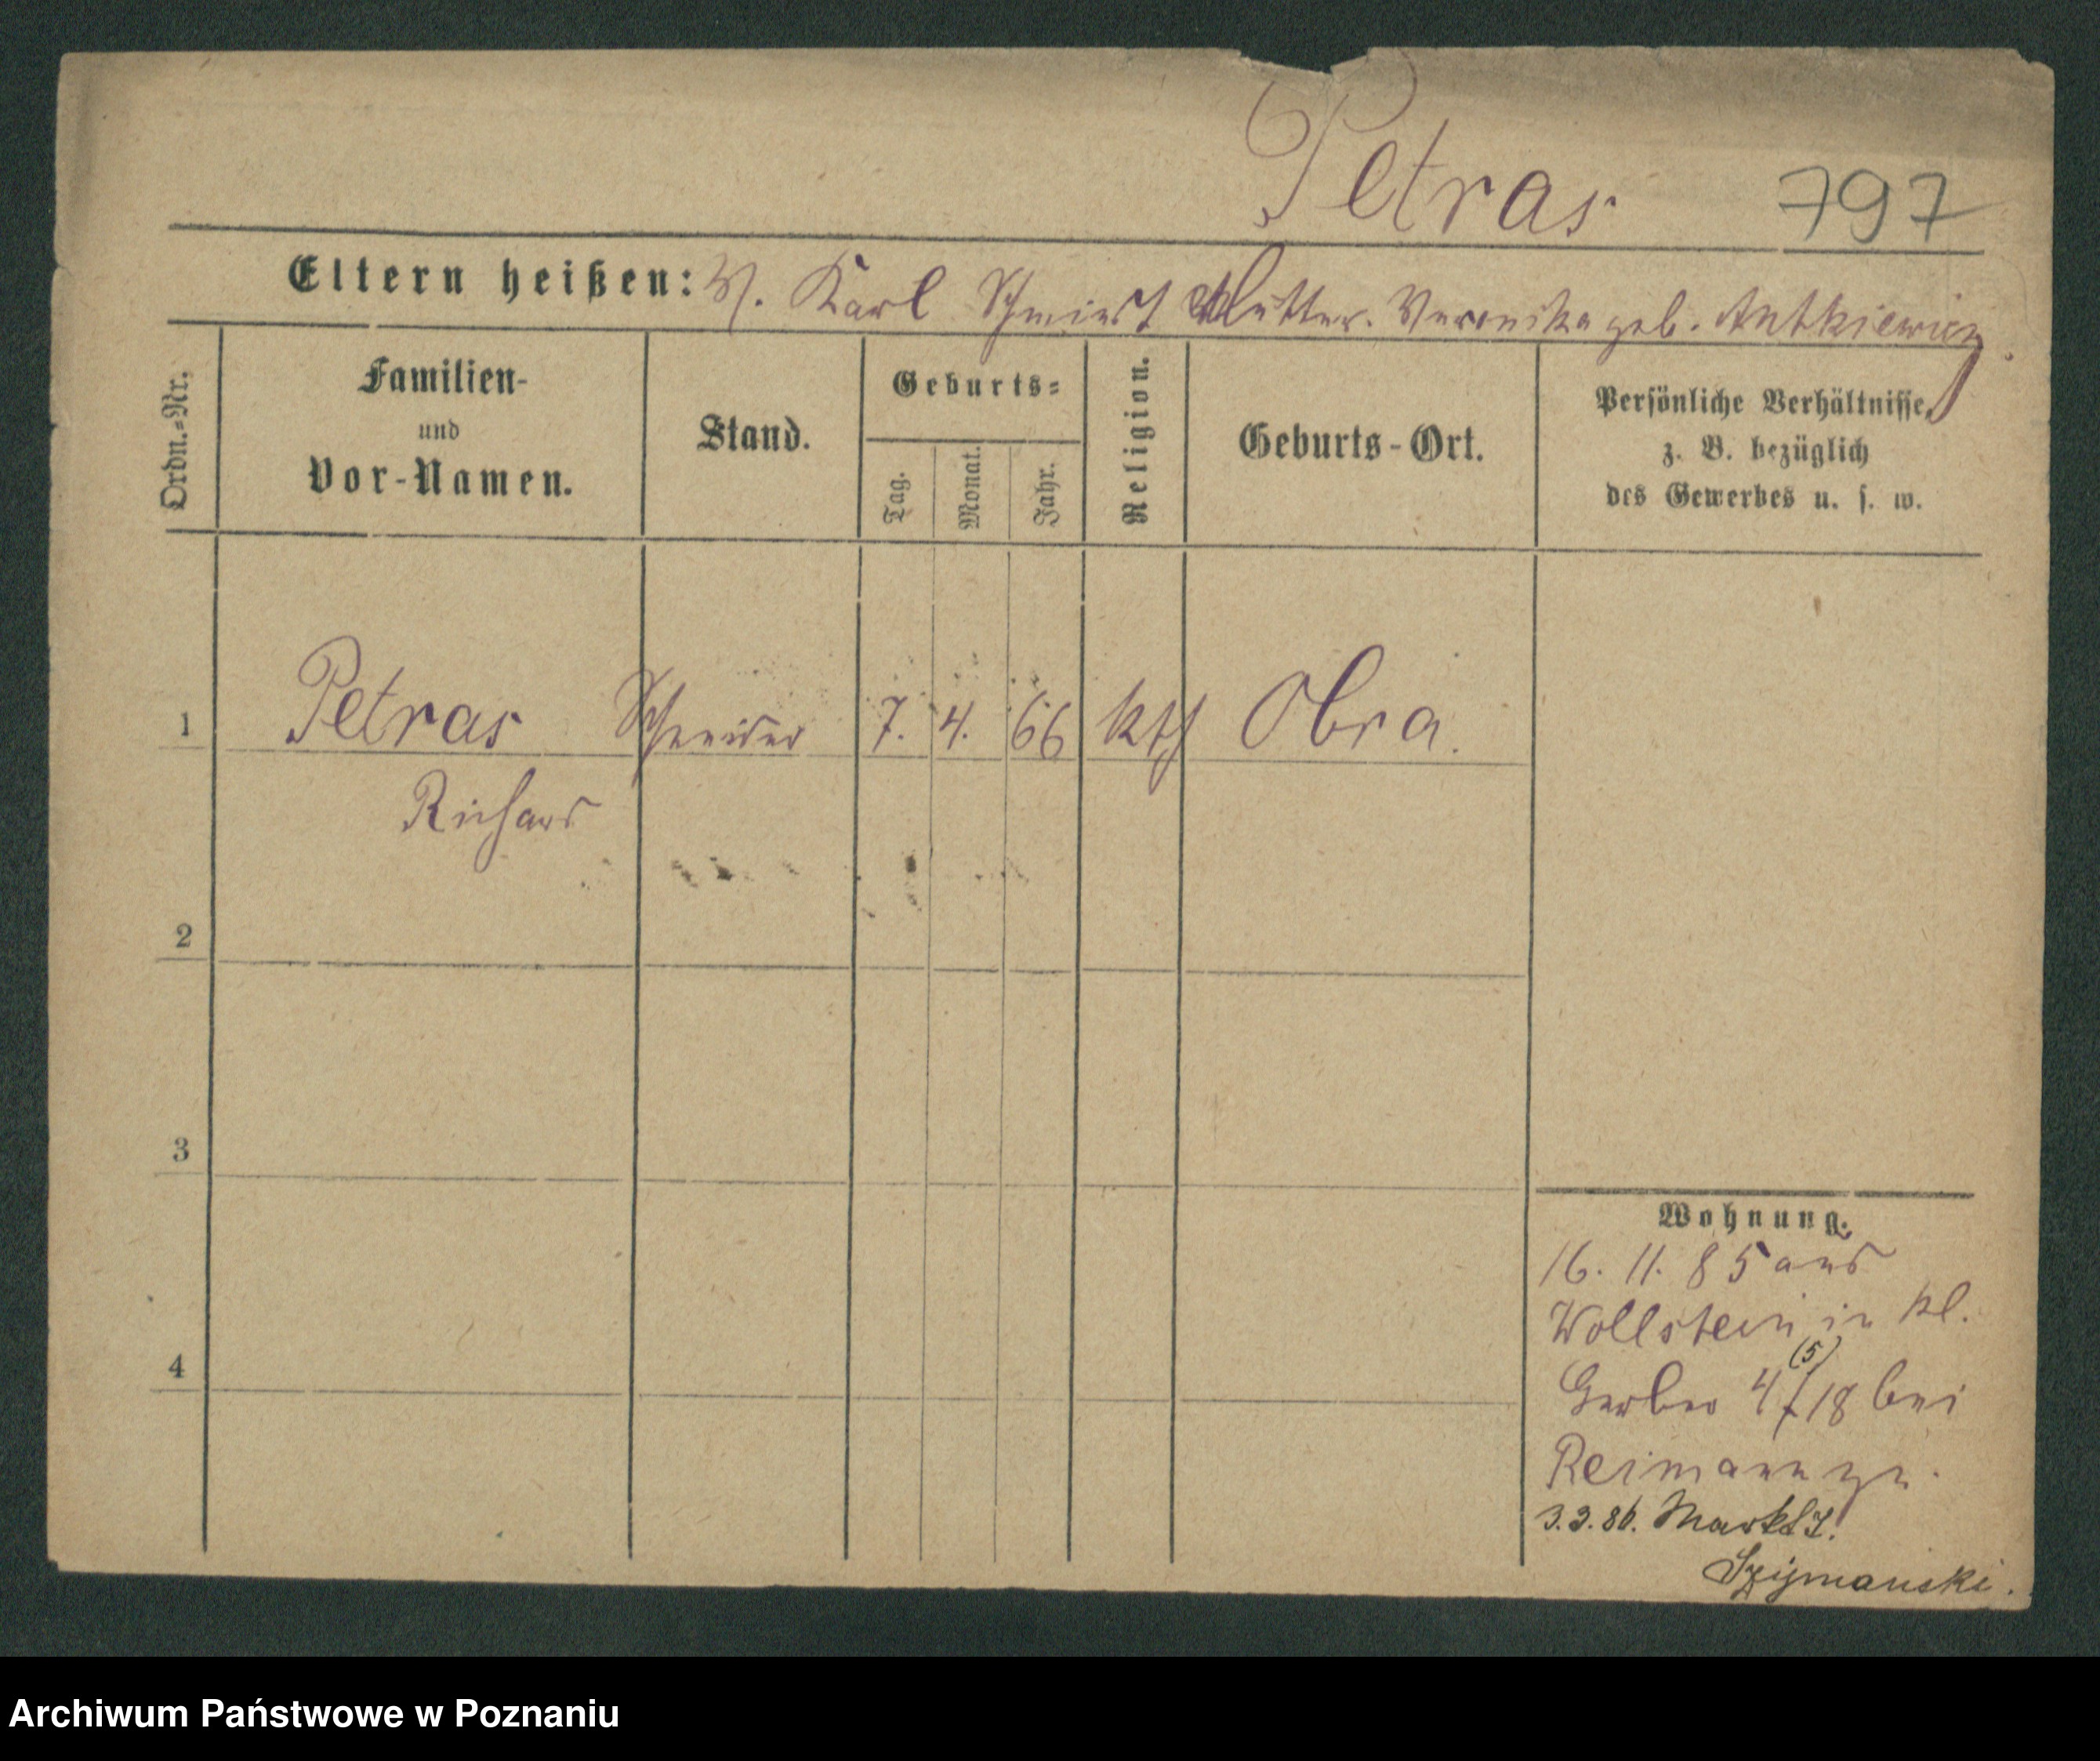 Petras 797
Eltern heißen: V. Karl Schmied Mutter. Veronika geb. Antkiewicz
Ordn.-Nr.
Familien-
und
Vor-Namen.
Stand.
Geburts-
Tag.
Monat.
Jahr.
Religion.
Geburts-Ort.
Persönliche Verhältnisse,
z. B. bezüglich
des Gewerbes u. s. w.
1 Petras Schneider 7. 4. 66 kth Obra.
Richard
2
3
4
Wohnung.
16. 11. 85 aus
Wollstein in kl.
(5)
Gerber 4/18 bei
Reimann zu.
3.3.86. Markt
Szymanski.
Archiwum Państwowe w Poznaniu